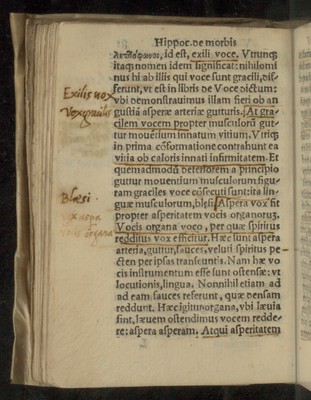 Hippoc. de morbis
λεπτόφωνοι, id est, exili voce. Vtrunq;
itaq; nomen idem significat: nihilomi
nus hi ab illis qui voce sunt gracili, dif-
ferunt, vt est in libris de Voce dictum:
vbi demonstrauimus illam fieri ob an
gustiā asperæ arteriæ gutturis. At gra
cilem vocem propter musculorū gut-
tur mouētium innatum vitium. Vtriq;
in prima cōformatione contrahunt ea
vitia ob caloris innati infirmitatem. Et
quemadmodū deteriorem a principio
guttur mouentium musculorum figu-
ram graciles voce cōsecuti sunt: ita lin-
guæ musculorum, blęsi. Aspera vox fit
propter asperitatem vocis organorū.
Vocis organa voco, per quæ spiritus
redditus vox efficitur. Hæc sunt aspera
arteria, guttur, fauces, veluti spiritus pe-
cten per ipsas transeuntis. Nam hæ vo
cis instrumentum esse sunt ostensæ: vt
locutionis, lingua. Nonnihil etiam ad
ad eam fauces referunt, quæ densam
reddunt. Hæc igitur organa, vbi læuia
sint, læuem ostendimus vocem redde-
re: aspera asperam. Atqui asperitatem
Exilis vox
Vox gracilis
Blæsi
vox aspa
organa